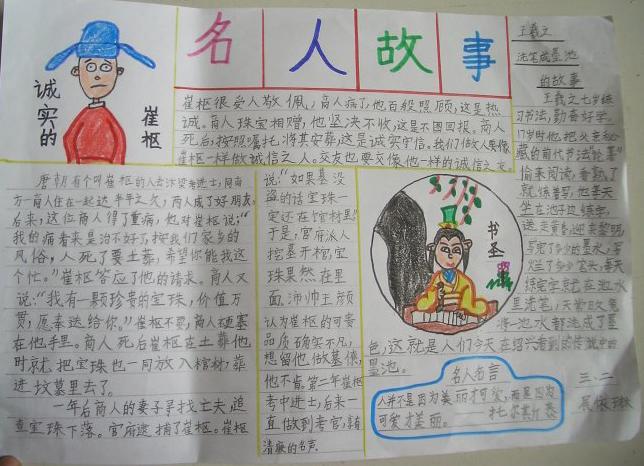 名人故事
诚实的
崔枢
崔枢很受人敬佩，商人病了，他百般照顾，这是热
诚。商人珠宝相赠，他坚决不收，这是不图回报。商人
死后，按照嘱托，将其安葬，这是诚实守信。我们做人要像
崔枢一样做诚信之人。交友也要交像他一样的诚信之友
唐朝有个叫崔枢的人去汴梁考进士，同南
方一商人住在一起达半年之久，两人成了好朋友。
后来，这位商人得了重病，他对崔枢说：“
我的病看来是治不好了，按我们家乡的
风俗，人死了要土葬，希望你能我这
个忙。”崔枢答应了他的请求。商人又
说：“我有一颗珍贵的宝珠，价值万
贯，愿奉送给你。”崔枢不要，商人硬塞
在他手里。商人死后崔枢在土葬他
时就把宝珠也一同放入棺材，葬
进坟墓里去了。
一年后商人的妻子寻找亡夫，追
查宝珠下落。官府逮捕了崔枢。崔枢
说：“如果墓没
盗的话宝珠一
定还在棺材里”
于是，官府派人
挖墓开棺，宝
珠果然在里
面。沛帅王彦
认为崔枢的可贵
品质确实不凡，
想留他做幕僚，
他不肯。第二年崔枢
考中进士，后来一
直做到考官，享有
清廉的名声。
王羲之
洗笔成墨池
的故事
王羲之七岁练
习书法，勤奋好学。
17岁时他把父亲秘
藏的前代书法论著
偷来阅读，看熟了
就练着写，他每天
坐在池子边练字，
送走黄昏，迎来黎明，
写完了多少的墨水，写
烂了多少笔头，每天
练完字就在池水
里洗笔，天长日久竟
将一池水都洗成了墨
色，这就是人们今天在绍兴看到的传说中的
墨池。
书圣
名人名言
人并不是因为美丽才可爱，而是因为
可爱才美丽。
托尔斯泰
三.二